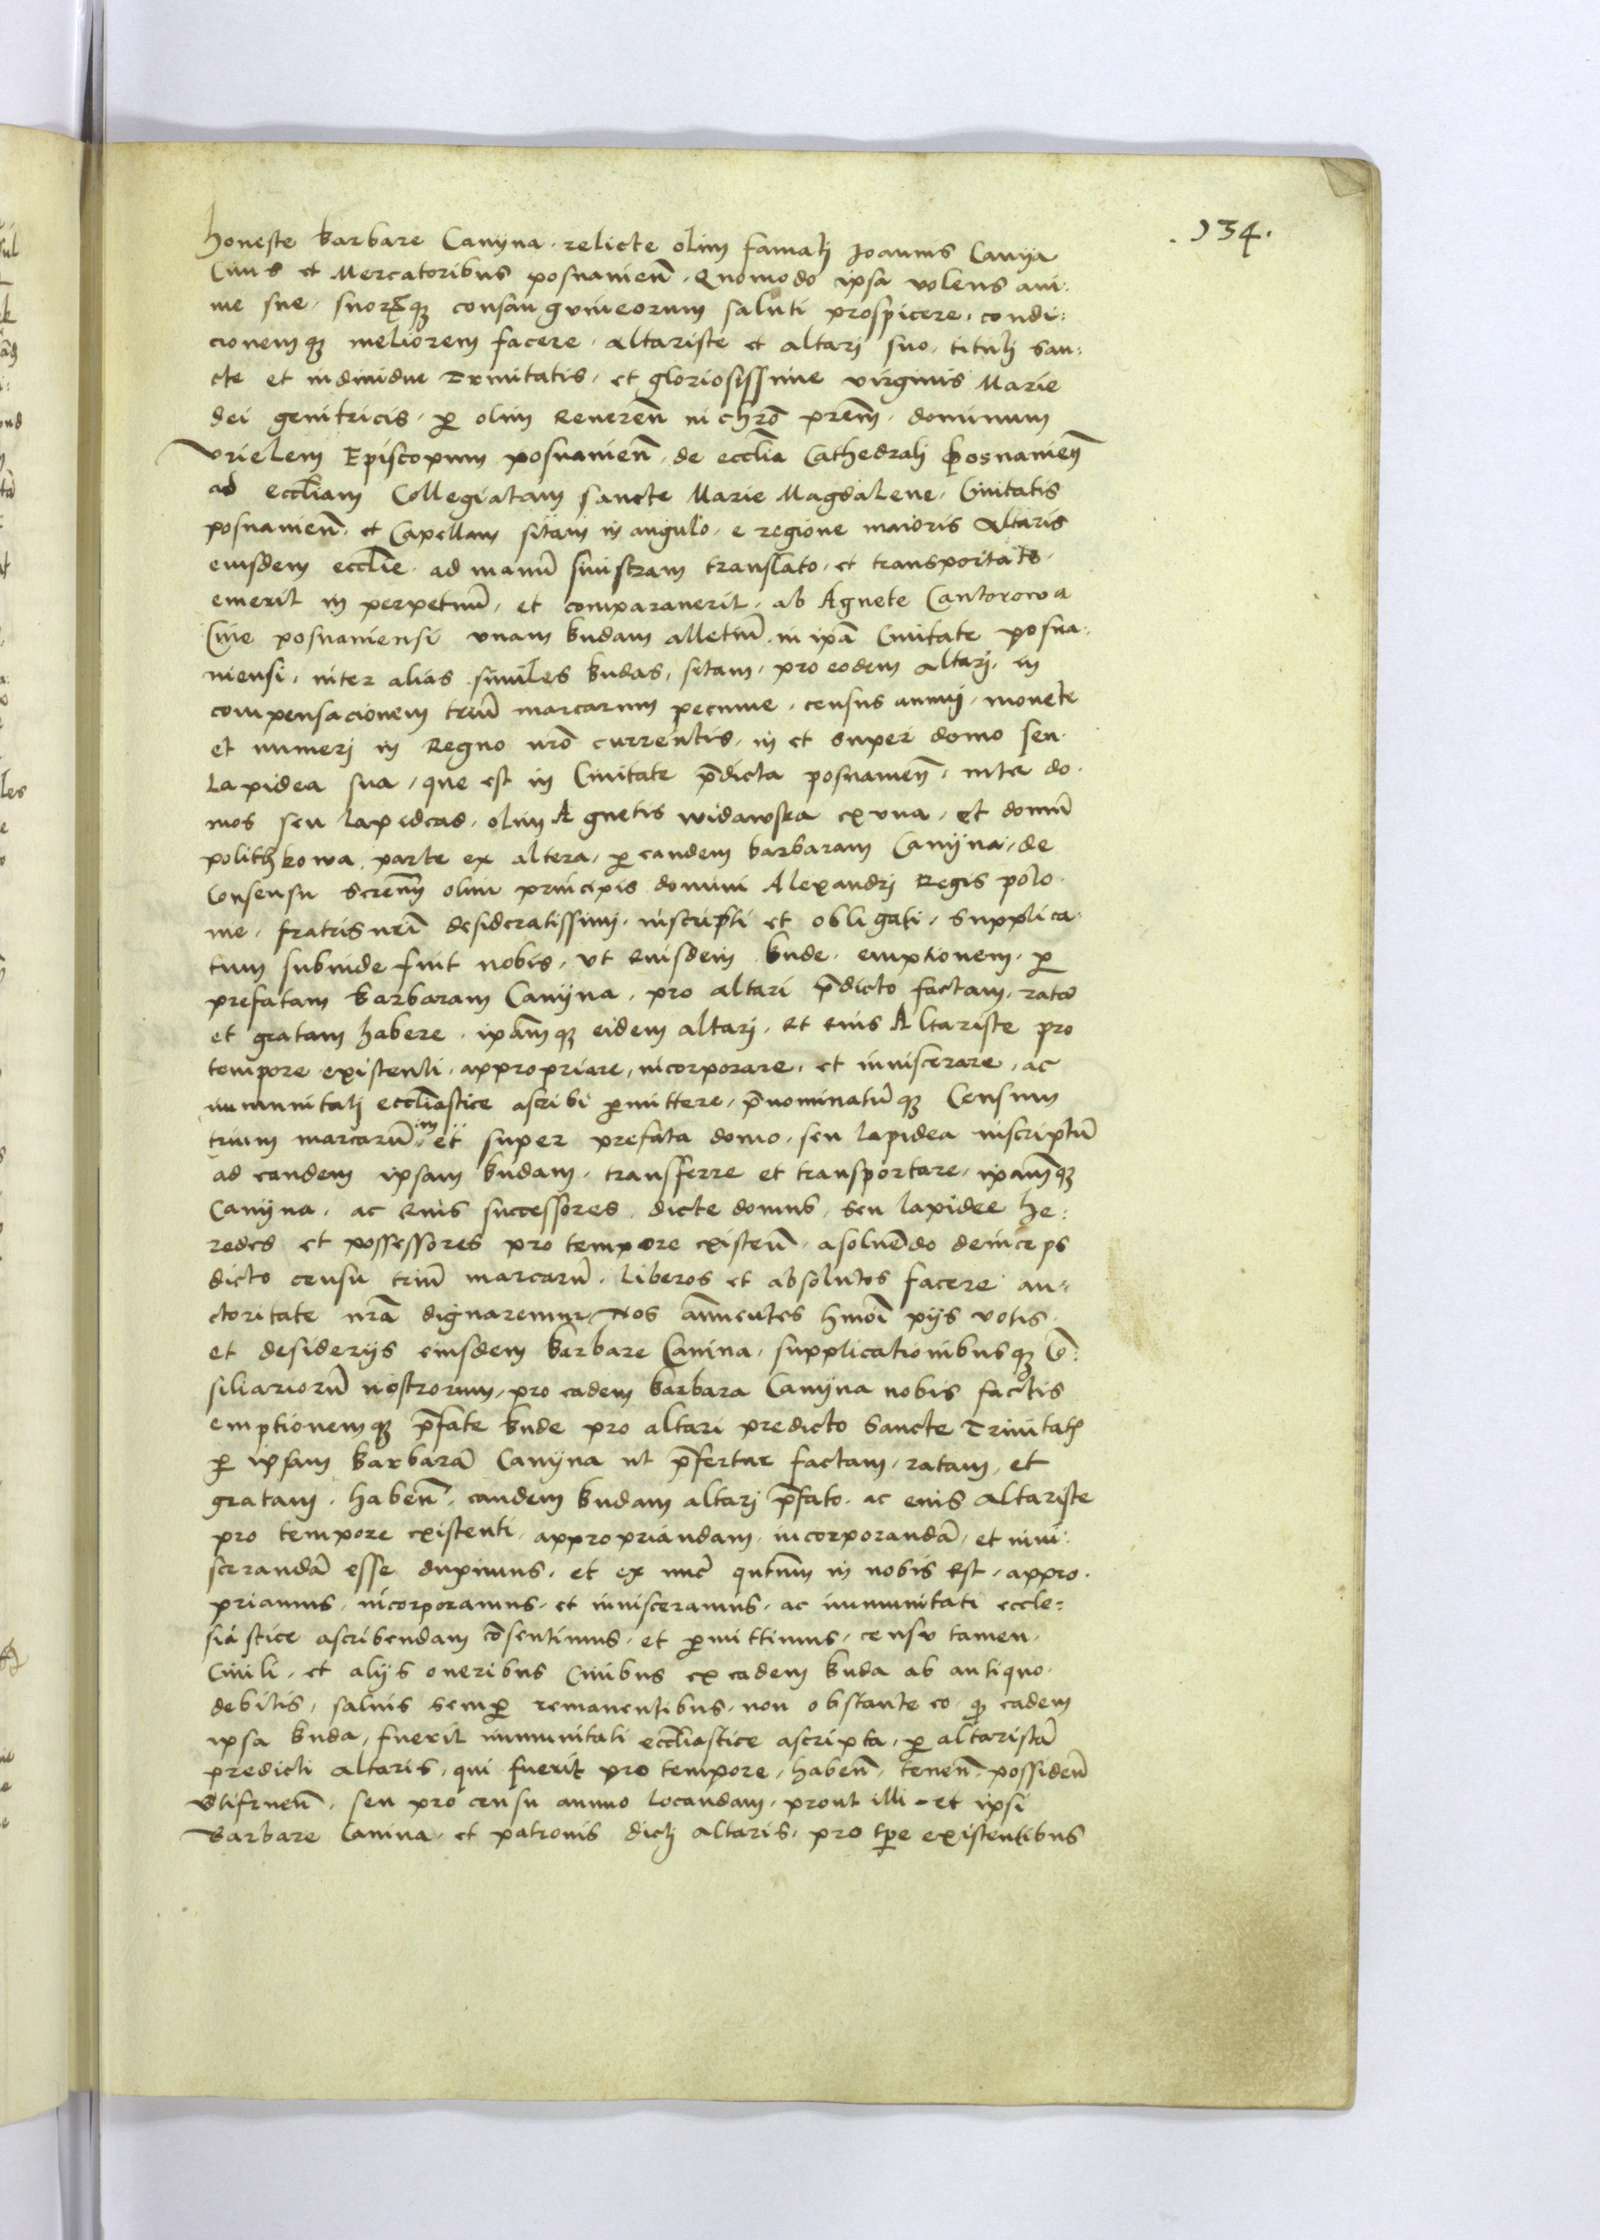 . 134 .
honeste barbare Canyna . relicte olim famati Joannis Canya
Ciuis et Mercatoribus posnanieñ . Quomodo ipsa volens ani:
me sue . suorꝝqꝫ consangvineorum saluti prospicere . condi:
cionemqꝫ meliorem facere . altariste et altari suo . tituli san:
cte et indiuidue Trinitatis . et gloriosissime virginis Marie
dei genitricis . ꝑ olim Reuereñ in chrō prem̄ . dominum
Vrielem Episcopum posnanieñ . de ecclīa Cathedrali posnanieñ
ad ecclīam Collegiatam sancte Marie Magdalene . Ciuitatis
posnanieñ . et Capellam sitam in angulo . e regione maioris altaris
eiusdem ecclīe . ad manū sinistram translato . et transportato .
emerit in perpetuū . et comparauerit . ab Agnete Cantorowa
Ciue posnaniensi vnam budam alletiū . in ipā Ciuitate posna:
niensi . inter alias similes budas . sitam . pro eodem altari . in
compensacionem triū marcarum pecunie . census annui . monete
et numeri in Regno nrō currentis . in et super domo seu
Lapidea sua , que est in Ciuitate p̄dicta posnanieñ . inter do .
mos seu lapideas . olim Agnetis widawska ex vna . et domū
polithkowa . parte ex altera . ꝑ eandem barbaram Canyna . de
Consensu Serenmi olim principis domini Alexandri Regis polo .
nie . fratris nr̄i desideratissimi . inscripti et obligati . supplica .
tum subinde fuit nobis . vt eiusdem bude . emptionem . ꝑ
prefatam barbaram Canyna . pro altari p̄dicto factam . ratā
et gratam habere . ipam̄qꝫ eidem altari . et eius Altariste pro
tempore existenti . appropriare , incorporare . et inuiscerare . ac
immunitati ecclīastice ascribi ꝑmittere . p̄nominatūqꝫ Censum
trium marcarū in et super prefata domo . seu lapidea inscriptū
ad eandem ipsam budam . transferre et transportare . ipamqꝫ
Canyna . ac eius successores . dicte domus . seu lapidee he:
redes et possessores pro tempore existeñ . a soluēdo deinceps
dicto censu triū marcarū . liberos et absolutos facere au:
ctoritate nrā dignaremur . Nos añuentes hmōi pijs votis .
et desiderijs eiusdem barbare Canina . supplicationibusqꝫ Cō:
siliariorū nostrorum . pro eadem barbara Canyna nobis factis
emptionemqꝫ p̄fate bude pro altari predicto Sancte Trinitatis
ꝑ ipsam barbarā Canyna ut p̄fertur factam . ratam . et
gratam . habeñ . eandem budam altari p̄fato . ac eius altariste
pro tempore existenti . appropriandam . incorporandā . et inui:
scerandā esse duximus . et ex nūc qntum in nobis est . appro .
priamus . incorporamus . et inuisceramus . ac immunitati eccle:
siastice ascribendam cōsentimus . et ꝑmittimus . censu tamen .
Ciuili . et alijs oneribus Ciuibus ex eadem buda ab antiquo .
debitis . saluis semꝑ remanentibus . non obstante eo . qꝫ eadem
ipsa buda , fuerit immunitati ecclīastice ascripta . ꝑ altaristā
predicti altaris , qui fuerit pro tempore . habeñ . teneñ . possideñ
Vtifrueñ . seu pro censu annuo locandam . prout illi et ipsi
Barbare Canina . et patronis dicti altaris . pro tꝑe existentibus